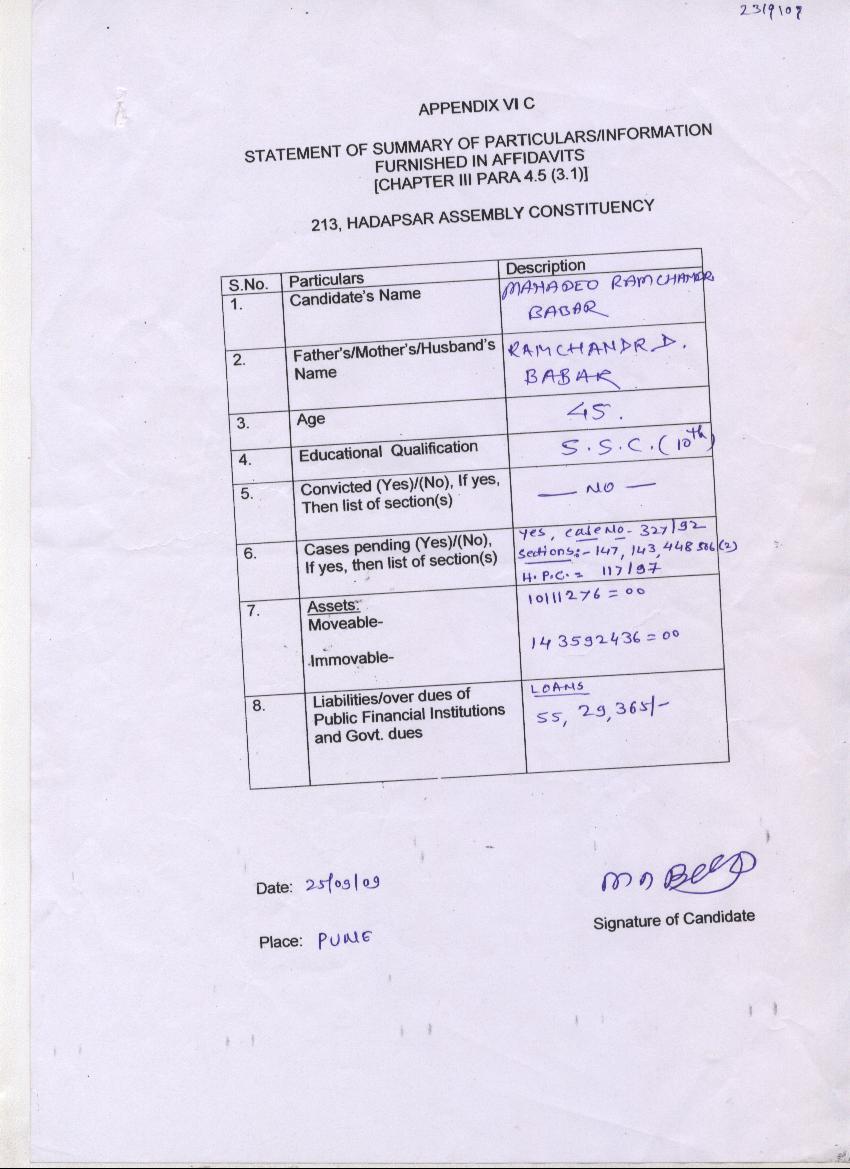 23/9/09
APPENDIX VI C
STATEMENT OF SUMMARY OF PARTICULARS/INFORMATION
FURNISHED IN AFFIDAVITS
[CHAPTER III PARA 4.5 (3.1)]
213, HADAPSAR ASSEMBLY CONSTITUENCY
S.No. Particulars Description
1. Candidate's Name MAHADEO RAMCHANDR
BABAR
2. Father's/Mother's/Husband's RAMCHANDR D.
Name BABAR
3. Age 45.
4. Educational Qualification S.S.C. (10th)
5. Convicted (Yes)/(No), If yes, — NO —
Then list of section(s)
6. Cases pending (Yes)/(No), Yes, case No- 327/92
If yes, then list of section(s) Sections:- 147, 143, 448 506(2)
H.P.C. = 117/97
7. Assets: 10111276=00
Moveable-
143592436=00
Immovable-
8. Liabilities/over dues of LOANS
Public Financial Institutions 55,29,365/-
and Govt. dues
Date: 25/09/09
Signature of Candidate
Place: PUNE